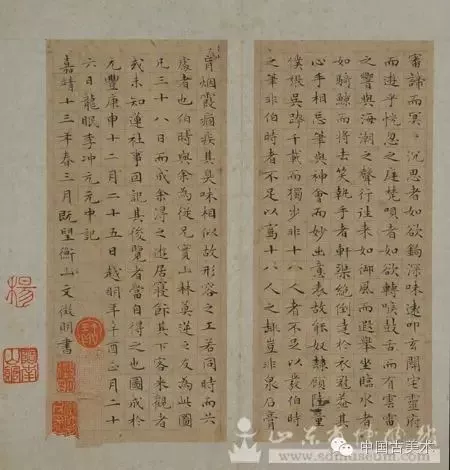 審諦而冥〻沉思者如欲鉤深味遠叩玄關宅靈府
而遊乎恍忽之庭梵唄者如欲轉喉鼓舌而有雲雷
之響與海潮之聲行往来如御風而遐舉坐臨水者
如騎鯨而将去笑執手者軒渠絕倒達於衣冠蓋其
心手相忘筆與神會而妙出意表故能奴隸顧陸童
僕張吴跨千載而獨步非十八人者不足以發伯時
之筆非伯時者不足以寫十八人之趣豈非泉石膏
肓烟霞痼疾其臭味相似故形容之工若同時而共
處者也伯時與余為從兄實山林莫逆之友為此圖
凡三十八日而成余淂之遊居寢飯其下客来觀者
或未知蓮社事因記其後覽者當自得之也圖成於
元豐庚申十二月二十五日越明年辛酉正月二十
六日龍眠李冲元元中記
嘉靖十三年春三月既望衡山文徵明書
楊
www.sdmuseum.com
中国古美术